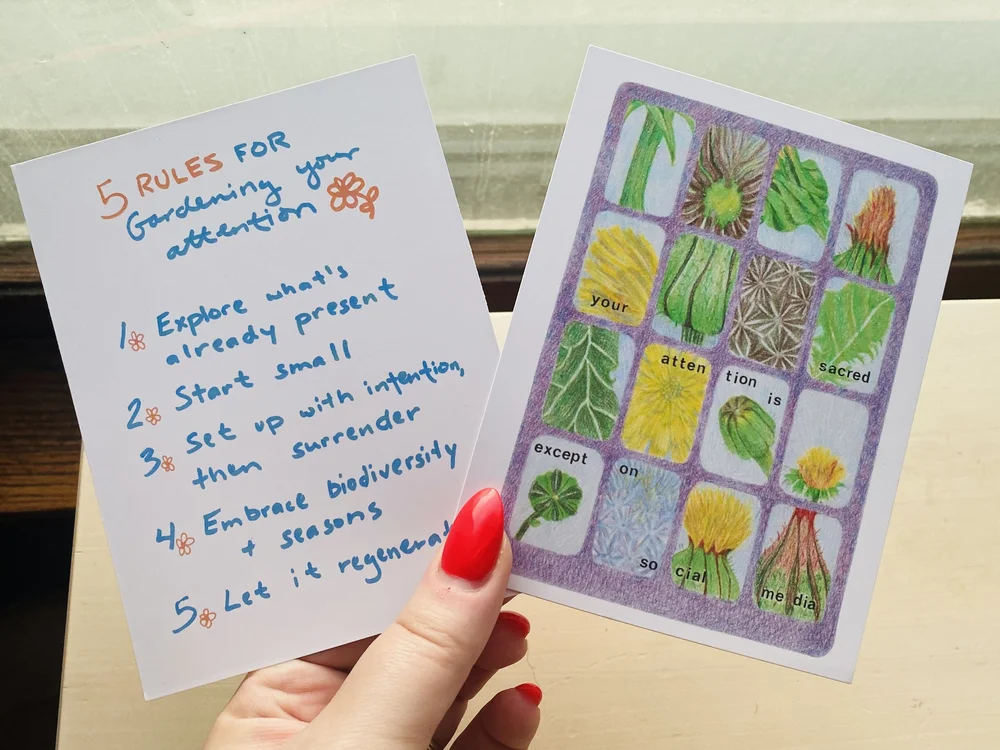 5 RULES FOR
Gardening your
attention
1. Explore what's
already present
2. Start small
3. Set up with intention,
then surrender
4. Embrace biodiversity
+ seasons
5. Let it regenerat
your
sacred
atten
tion
is
except
on
so
cial
me dia